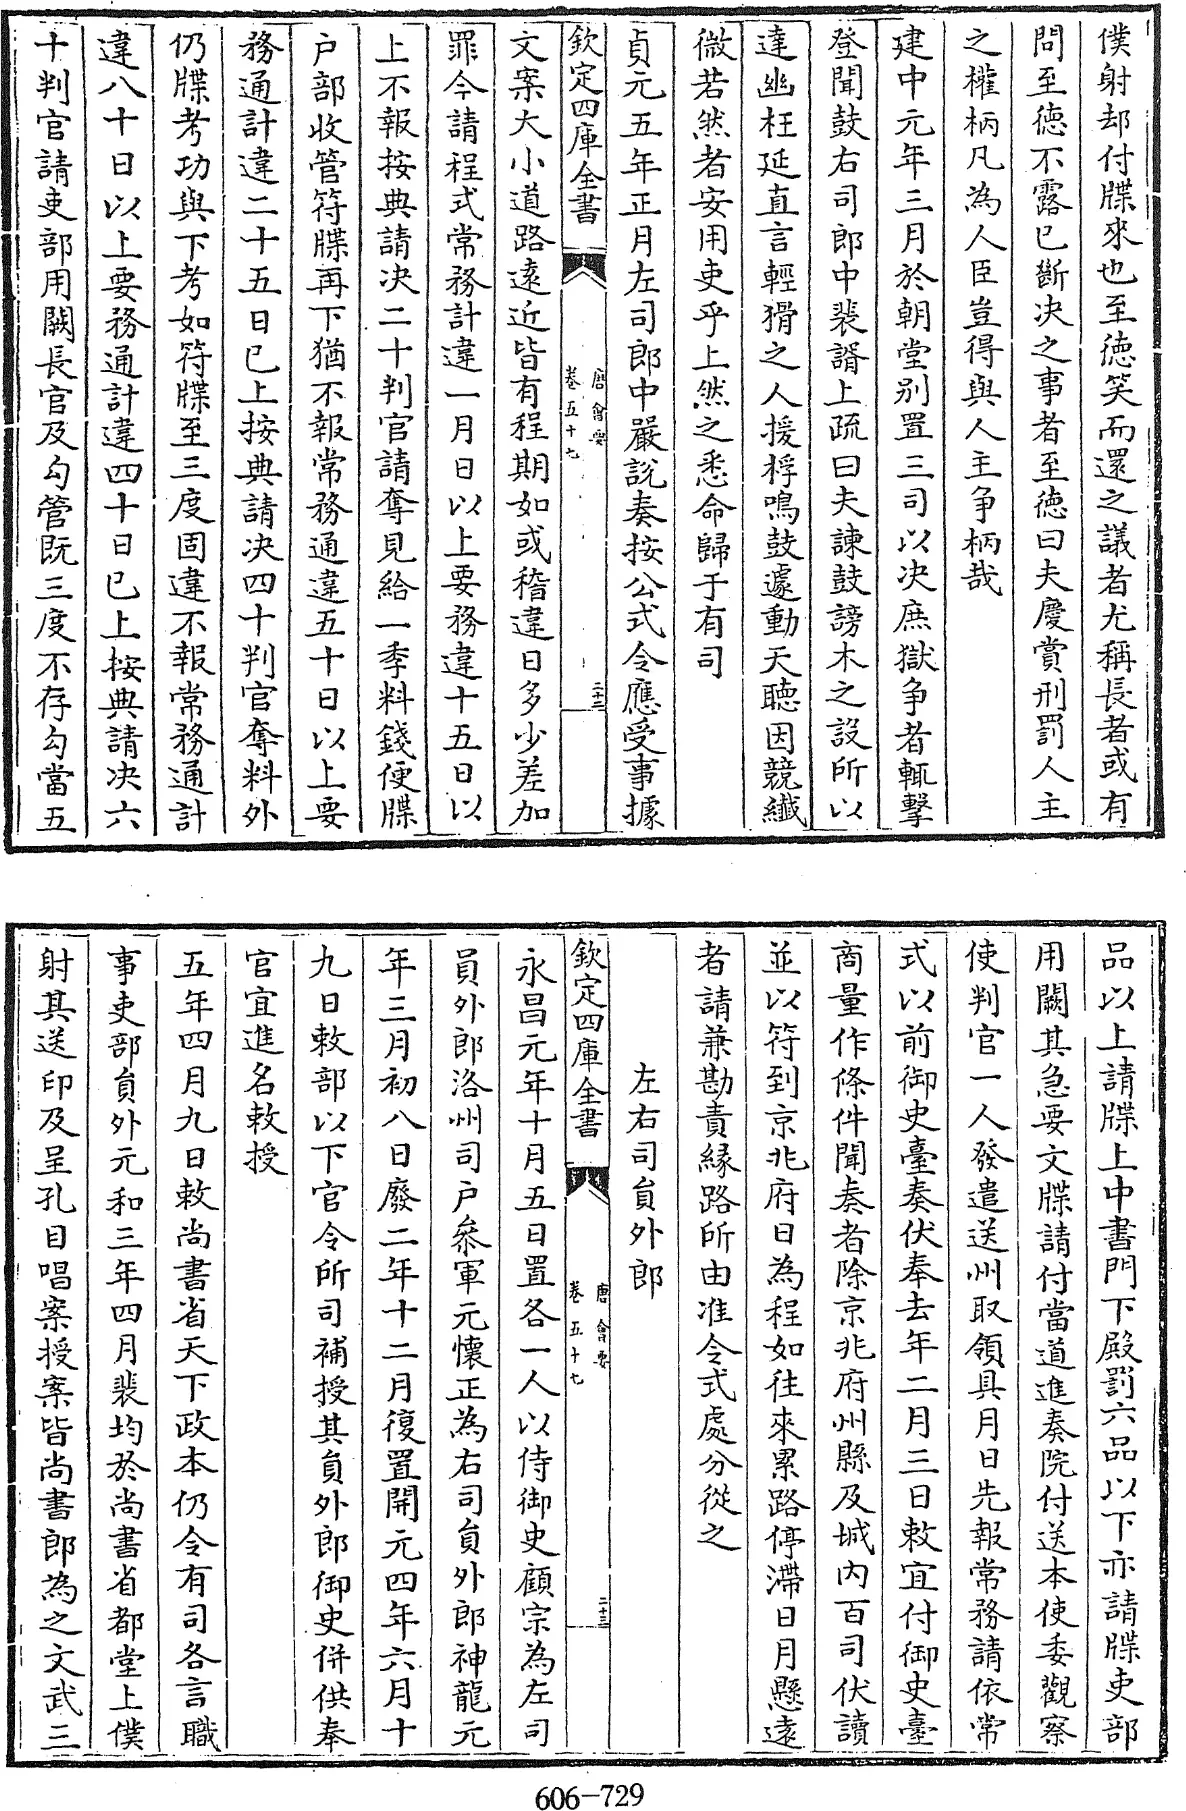 僕射却付牒來也至徳笑而還之議者尤稱長者或有
問至徳不露已斷决之事者至徳曰夫慶賞刑罰人主
之權柄凡為人臣豈得與人主争柄哉
建中元年三月於朝堂别置三司以决庶獄争者輒擊
登聞鼓右司郎中裴諝上疏曰夫諫鼓謗木之設所以
達幽枉延直言輕猾之人援桴鳴鼓遽動天聴因競纎
微若然者安用吏乎上然之悉命歸于有司
貞元五年正月左司郎中嚴説奏按公式令應受事據
欽定四庫全書
唐會要
卷五十七
二十三
文案大小道路逺近皆有程期如或稽違日多少差加
罪今請程式常務計違一月日以上要務違十五日以
上不報按典請决二十判官請奪見給一季料錢便牒
户部收管符牒再下猶不報常務通違五十日以上要
務通計違二十五日已上按典請决四十判官奪料外
仍牒考功與下考如符牒至三度固違不報常務通計
違八十日以上要務通計違四十日已上按典請决六
十判官請吏部用闕長官及勾管既三度不存勾當五
品以上請牒上中書門下殿罰六品以下亦請牒吏部
用闕其急要文牒請付當道進奏院付送本使委觀察
使判官一人發遣送州取領具月日先報常務請依常
式以前御史臺奏伏奉去年二月三日敕宜付御史臺
商量作條件聞奏者除京兆府州縣及城内百司伏讀
並以符到京兆府日為程如往來累路停滯日月懸逺
者請兼勘責縁路所由准令式處分從之
左右司貟外郎
欽定四庫全書
唐會要
卷五十七
二十三
永昌元年十月五日置各一人以侍御史顧宗為左司
員外郎洛州司户叅軍元懷正為右司貟外郎神龍元
年三月初八日廢二年十二月復置開元四年六月十
九日敕部以下官令所司補授其貟外郎御史併供奉
官宜進名敕授
五年四月九日敕尚書省天下政本仍令有司各言職
事吏部貟外元和三年四月裴均於尚書省都堂上僕
射其送印及呈孔目唱案授案皆尚書郎為之文武三
606-729